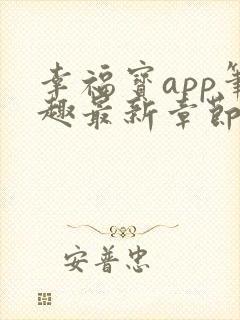 幸福宝app笔
趣最新章节
安普忠